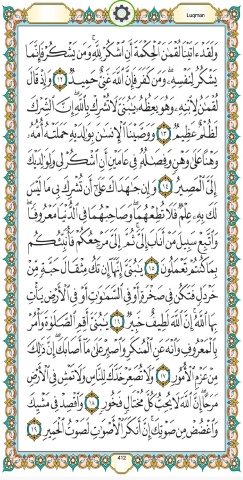 Luqman
وَلَقَدْ ءَاتَيْنَا لُقْمَٰنَ ٱلْحِكْمَةَ أَنِ ٱشْكُرْ لِلَّهِ ۚ وَمَن يَشْكُرْ فَإِنَّمَا
يَشْكُرُ لِنَفْسِهِۦ ۖ وَمَن كَفَرَ فَإِنَّ ٱللَّهَ غَنِىٌّ حَمِيدٌ ١٢ وَإِذْ قَالَ
لُقْمَٰنُ لِٱبْنِهِۦ وَهُوَ يَعِظُهُۥ يَٰبُنَىَّ لَا تُشْرِكْ بِٱللَّهِ ۖ إِنَّ ٱلشِّرْكَ
لَظُلْمٌ عَظِيمٌ ١٣ وَوَصَّيْنَا ٱلْإِنسَٰنَ بِوَٰلِدَيْهِ حَمَلَتْهُ أُمُّهُۥ
وَهْنًا عَلَىٰ وَهْنٍ وَفِصَٰلُهُۥ فِى عَامَيْنِ أَنِ ٱشْكُرْ لِى وَلِوَٰلِدَيْكَ
إِلَىَّ ٱلْمَصِيرُ ١٤ وَإِن جَٰهَدَاكَ عَلَىٰٓ أَن تُشْرِكَ بِى مَا لَيْسَ
لَكَ بِهِۦ عِلْمٌ فَلَا تُطِعْهُمَا ۖ وَصَاحِبْهُمَا فِى ٱلدُّنْيَا مَعْرُوفًا ۖ
وَٱتَّبِعْ سَبِيلَ مَنْ أَنَابَ إِلَىَّ ۚ ثُمَّ إِلَىَّ مَرْجِعُكُمْ فَأُنَبِّئُكُم
بِمَا كُنتُمْ تَعْمَلُونَ ١٥ يَٰبُنَىَّ إِنَّهَآ إِن تَكُ مِثْقَالَ حَبَّةٍ مِّنْ
خَرْدَلٍ فَتَكُن فِى صَخْرَةٍ أَوْ فِى ٱلسَّمَٰوَٰتِ أَوْ فِى ٱلْأَرْضِ يَأْتِ
بِهَا ٱللَّهُ ۚ إِنَّ ٱللَّهَ لَطِيفٌ خَبِيرٌ ١٦ يَٰبُنَىَّ أَقِمِ ٱلصَّلَوٰةَ وَأْمُرْ
بِٱلْمَعْرُوفِ وَٱنْهَ عَنِ ٱلْمُنكَرِ وَٱصْبِرْ عَلَىٰ مَآ أَصَابَكَ ۖ إِنَّ ذَٰلِكَ
مِنْ عَزْمِ ٱلْأُمُورِ ١٧ وَلَا تُصَعِّرْ خَدَّكَ لِلنَّاسِ وَلَا تَمْشِ فِى ٱلْأَرْضِ
مَرَحًا ۖ إِنَّ ٱللَّهَ لَا يُحِبُّ كُلَّ مُخْتَالٍ فَخُورٍ ١٨ وَٱقْصِدْ فِى مَشْيِكَ
وَٱغْضُضْ مِن صَوْتِكَ ۚ إِنَّ أَنكَرَ ٱلْأَصْوَٰتِ لَصَوْتُ ٱلْحَمِيرِ ١٩
412